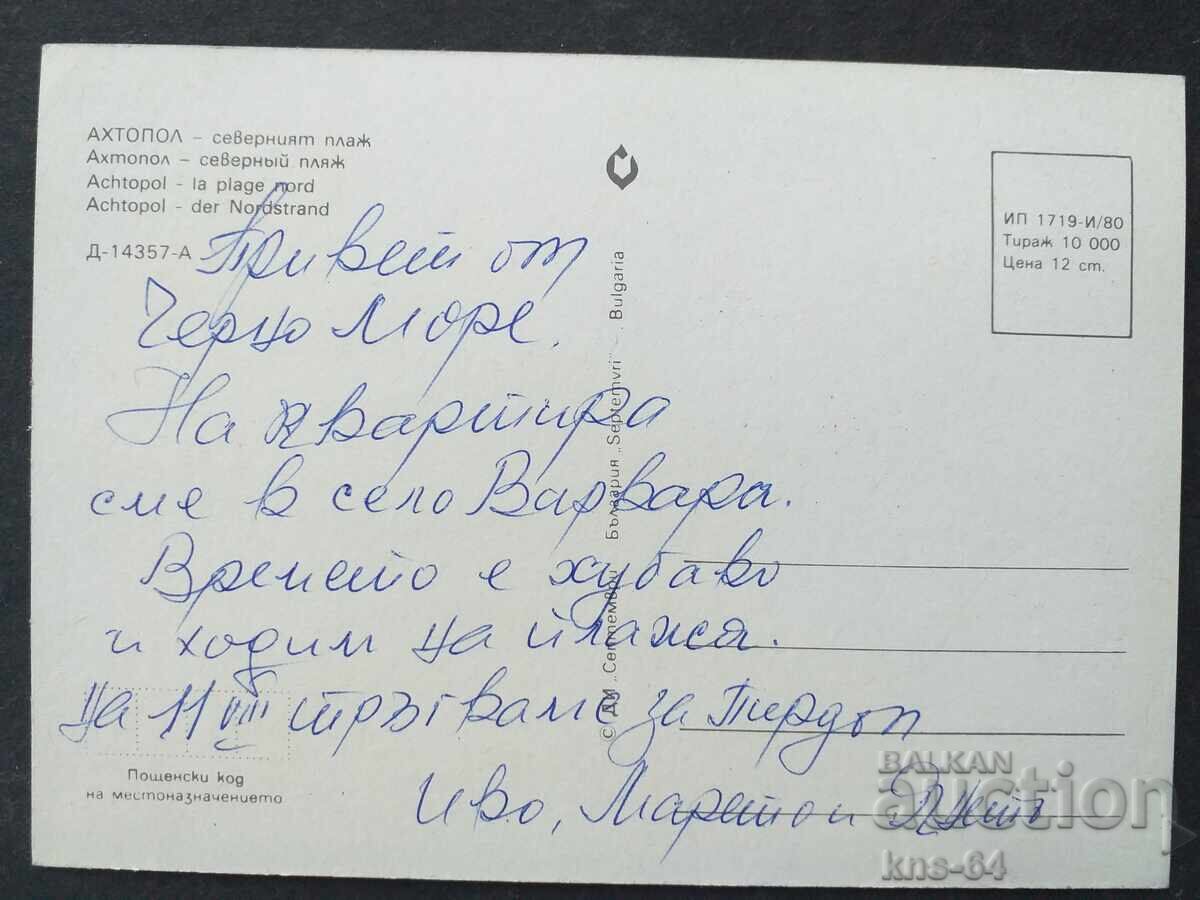 АХТОПОЛ – северният плаж
Ахтопол – северный пляж
Achtopol - la plage nord
Achtopol - der Nordstrand
Д-14357-А
ИП 1719-И/80
Тираж 10 000
Цена 12 ст.
Привет от
Черно Море.
На квартира
сме в село Варвара.
Времето е хубаво
и ходим на плажа.
На 11 VIII тръгваме за Пирдоп
Иво, и
© ДИ „Септември" България „Septemvri" Bulgaria
Пощенски код
на местоназначението
BALKAN
auction
kns-64